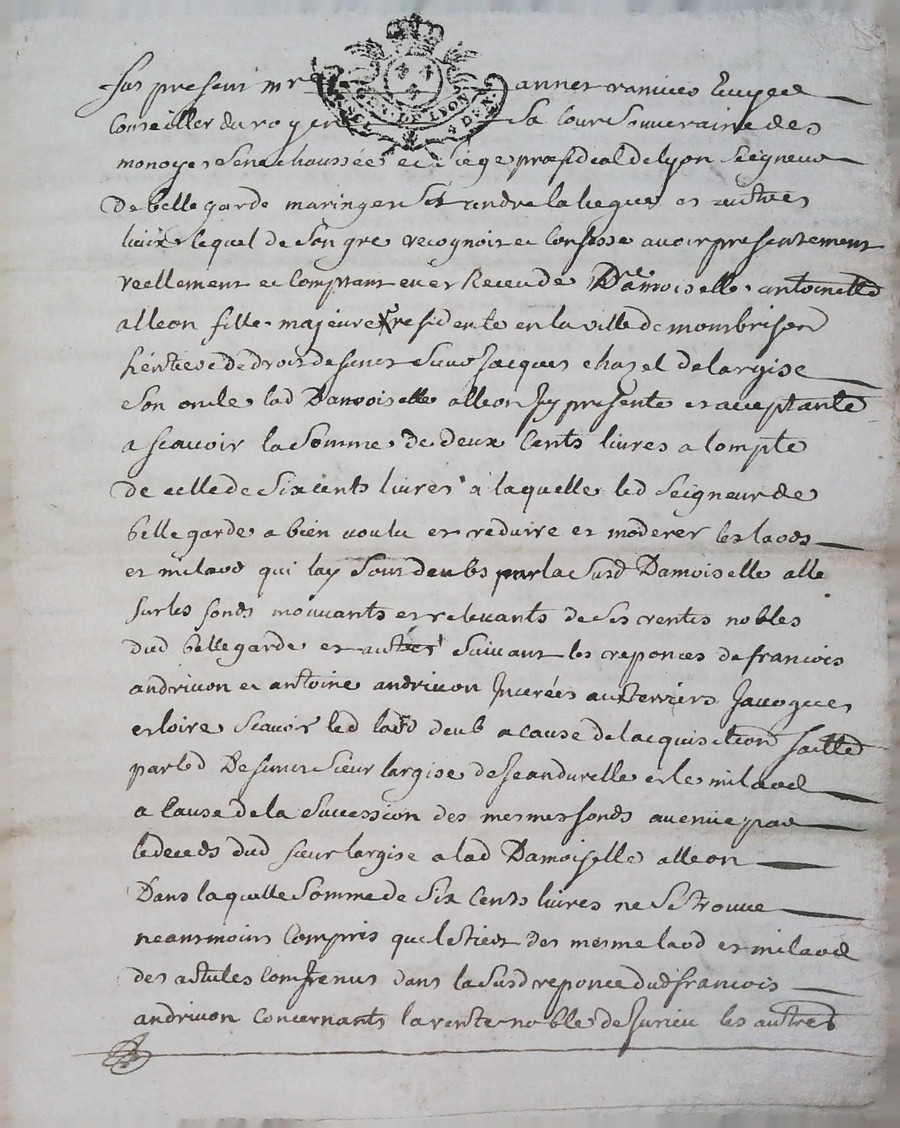 fut present mre annet ranvier Ecuyer
Conseiller du roy en sa Cour Souveraine des
monoyes Senechaussée et siege presidial de lyon Seigneur
de belle garde maringes St andre la liegue et autres
lieux lequel de son gre recognoit et confesse avoir presentement
reellement et comptant eu et Receu de Damoiselle antoinette
alleon fille majeure residente en la ville de mombrison
héritiere de droit de defunct Sieur Jacques chazel de largise
son oncle lad Damoiselle alleon Icy presente et acceptante
a scavoir la somme de deux Cents livres a Compte
de celle de Six cents livres a laquelle led Seigneur de
belle garde a bien voulu et reduire et moderer les laods
et milaod qui luy sont deubs par la susd Damoiselle alle
sur les fonds mouvants et relevants de ses rentes nobles
dud belle garde et autres suivant les reponces de francois
andrivon et antoine andrivon Incerées aux terriers Javogues
et loire scavoir led laod deub a cause de lacquisition faitte
par led Defunct sieur largise de Jean durelle et le milaod
a Cause de la Succession des mesmes fonds avenue par
le deceds dud sieur largise a lad Damoiselle alleon
Dans laquelle Somme de Six Cents livres ne se trouve
neantmoins Compris que le tiers des mesme laod et milaod
des articles Contenus dans la susd reponce dud francois
andrivon Concernants la rente noble de Surieu les autres